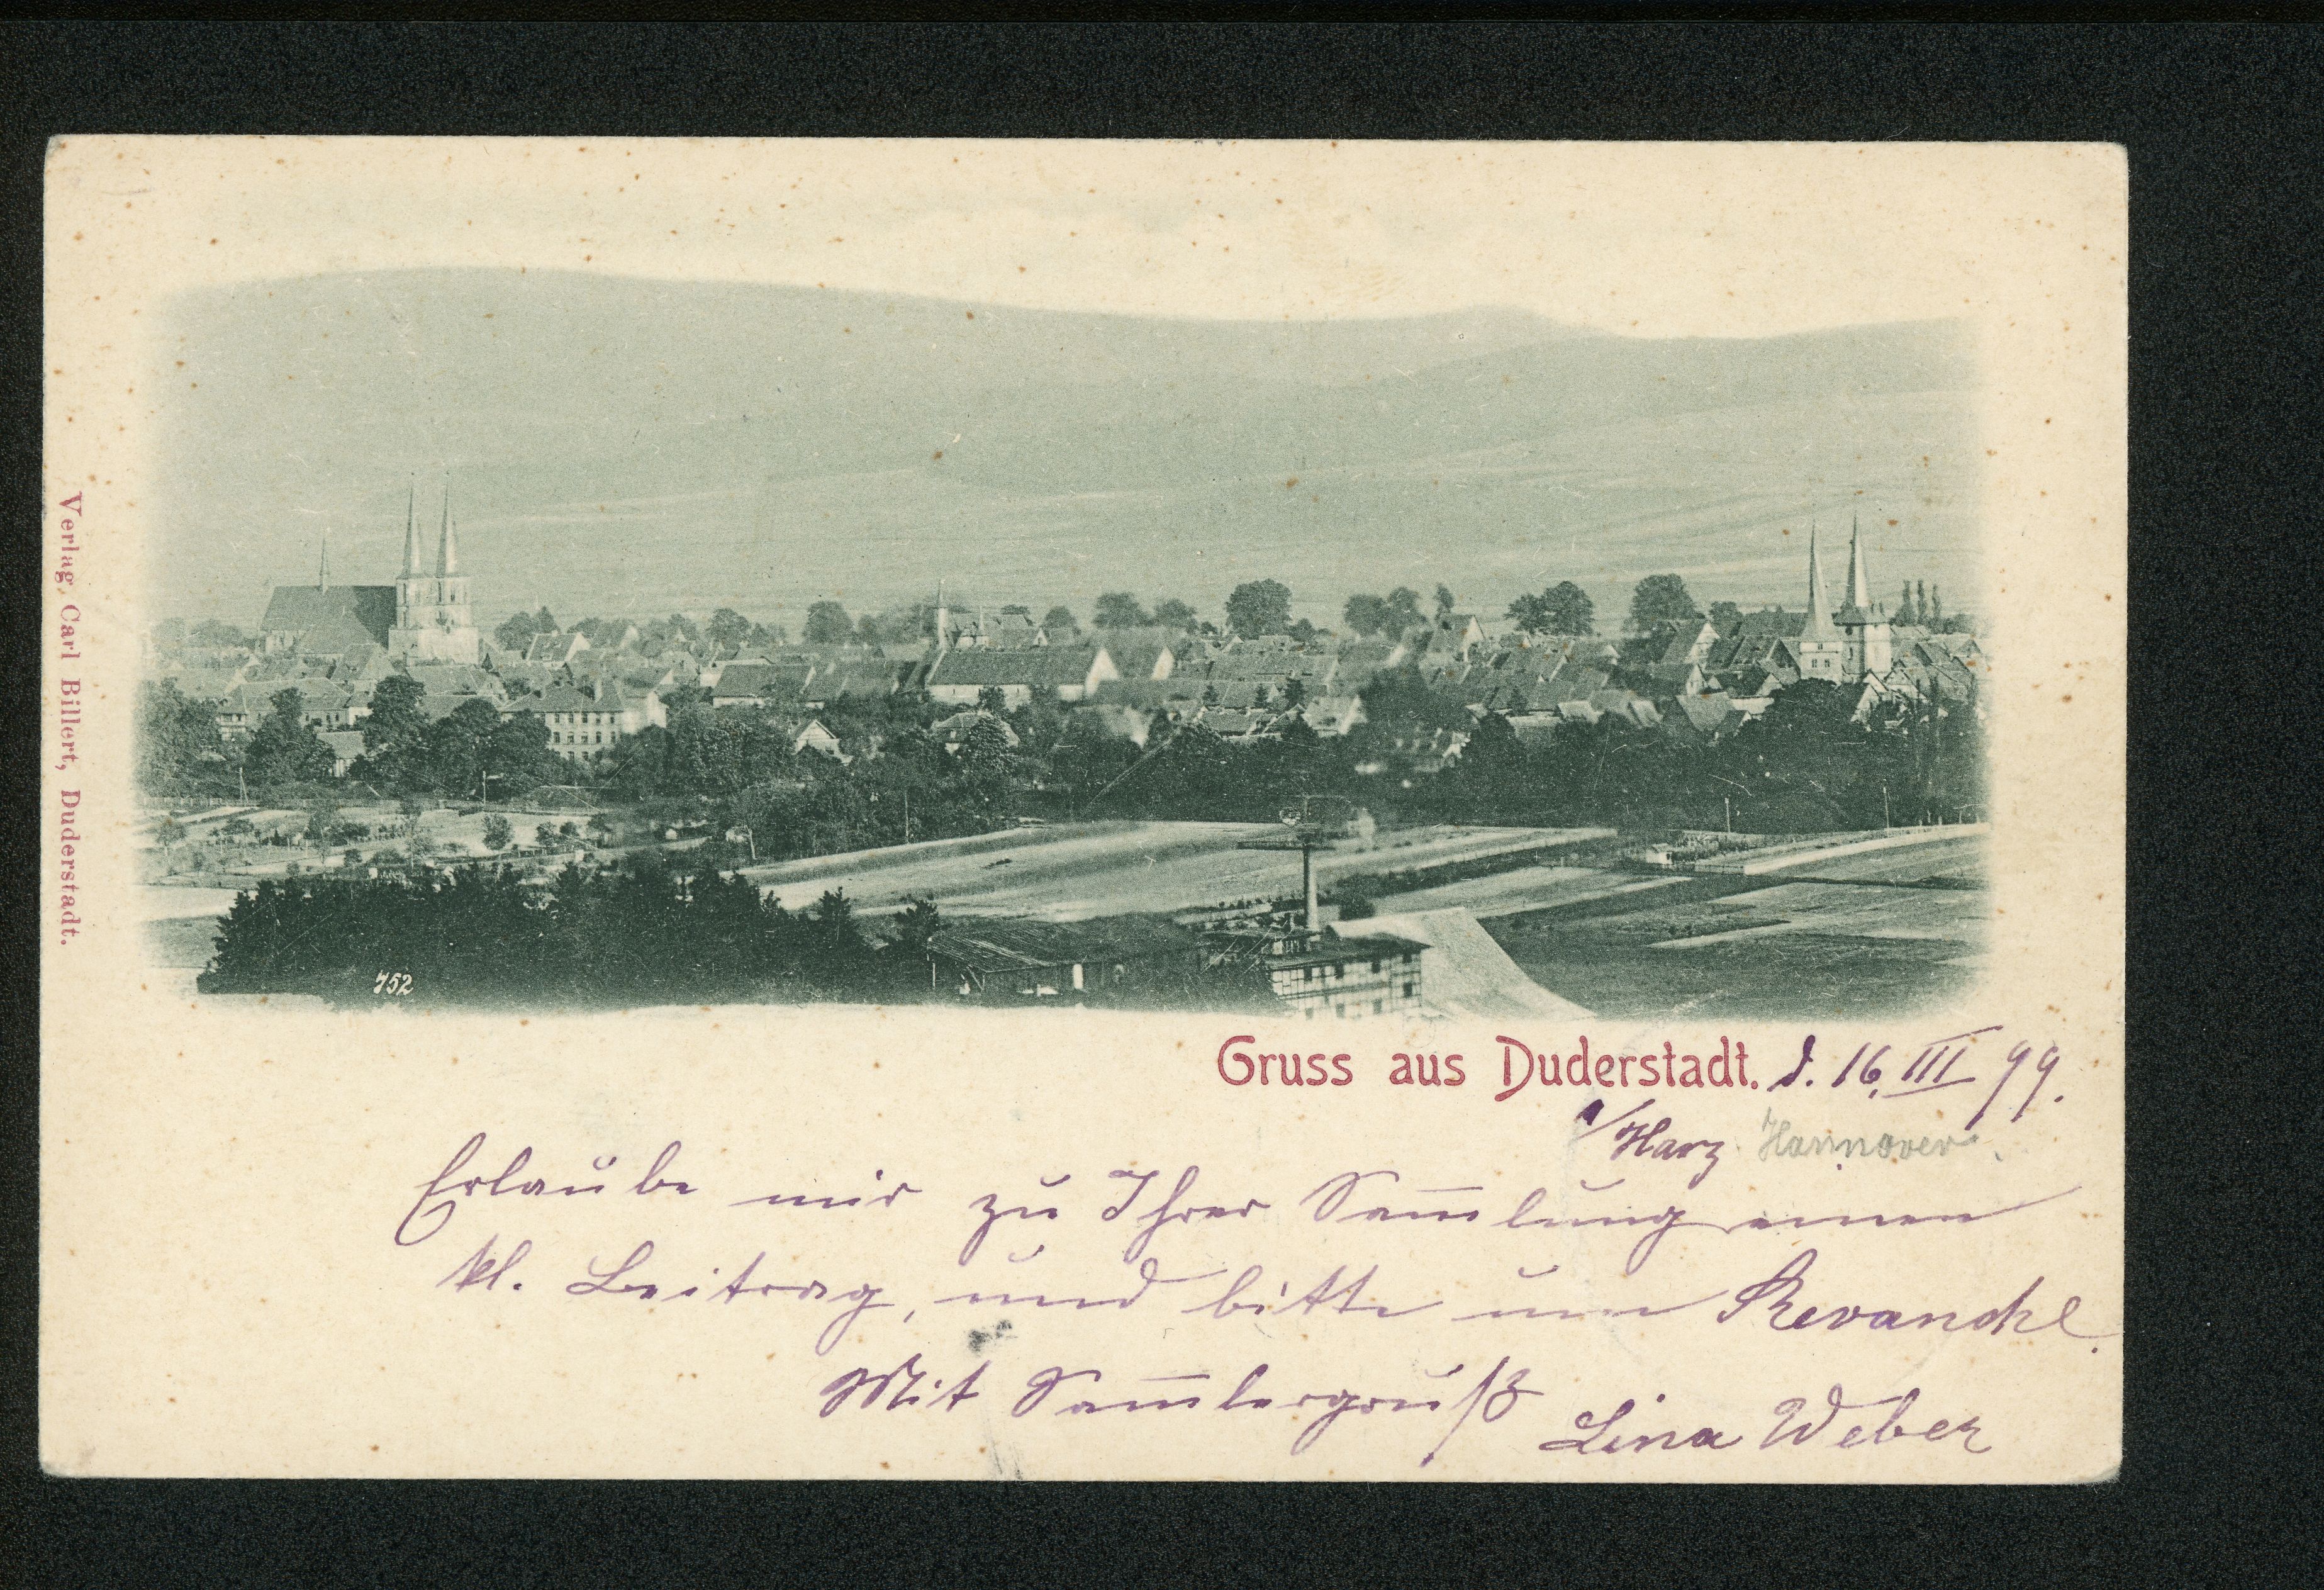 Verlag, Carl Billert, Duderstadt.
752
Gruss aus Duderstadt. d. 16. III 99.
a/Harz Hannover.
Erlaube mir zu Ihrer Sam̅lung einen
kl. Beitrag, und bitte um Revanche.
Mit Sam̅lergruß
Lina Weber